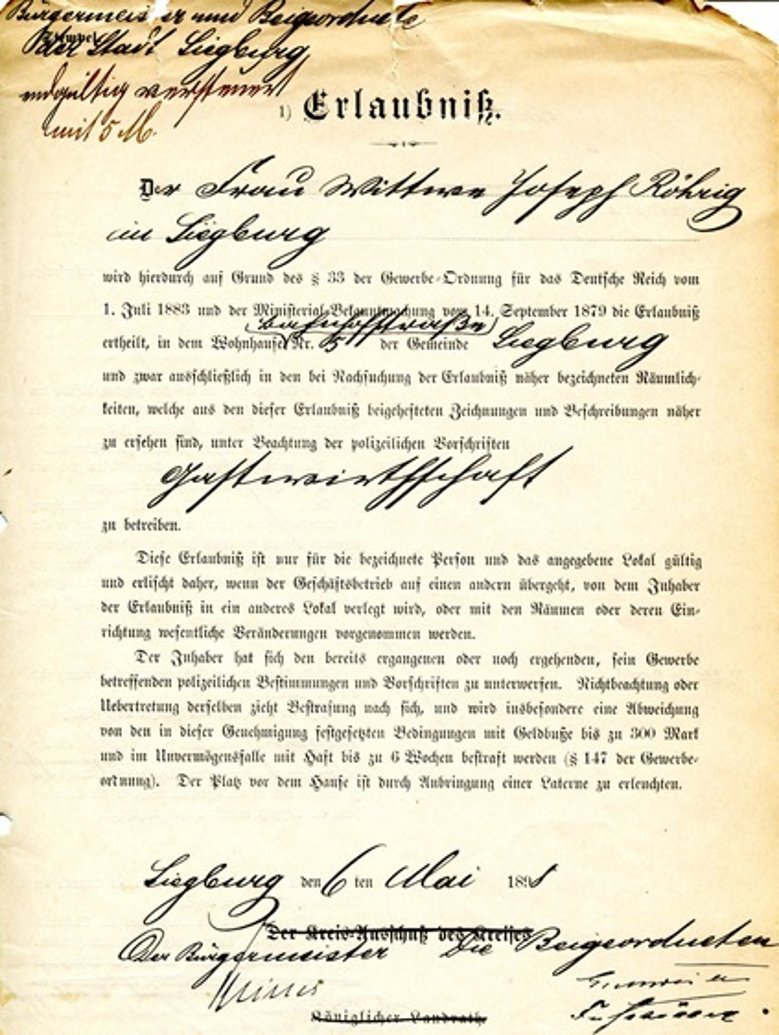 Bürgermeister und Beigeordnete
Stempel.
der Stadt Siegburg
endgültig versteuert
mit 5 M.
1) Erlaubniß.
Der Frau Wittwe Joseph Röhrig
in Siegburg
wird hierdurch auf Grund des § 33 der Gewerbe-Ordnung für das Deutsche Reich vom
1. Juli 1883 und der Ministerial-Bekanntmachung vom 14. September 1879 die Erlaubniß
Bahnhofstraße
ertheilt, in dem Wohnhause Nr. 5 der Gemeinde Siegburg
und zwar ausschließlich in den bei Nachsuchung der Erlaubniß näher bezeichneten Räumlich-
keiten, welche aus den dieser Erlaubniß beigehefteten Zeichnungen und Beschreibungen näher
zu ersehen sind, unter Beachtung der polizeilichen Vorschriften
Gastwirthschaft
zu betreiben.
Diese Erlaubniß ist nur für die bezeichnete Person und das angegebene Lokal gültig
und erlischt daher, wenn der Geschäftsbetrieb auf einen andern übergeht, von dem Inhaber
der Erlaubniß in ein anderes Lokal verlegt wird, oder mit den Räumen oder deren Ein-
richtung wesentliche Veränderungen vorgenommen werden.
Der Inhaber hat sich den bereits ergangenen oder noch ergehenden, sein Gewerbe
betreffenden polizeilichen Bestimmungen und Vorschriften zu unterwerfen. Nichtbeachtung oder
Uebertretung derselben zieht Bestrafung nach sich, und wird insbesondere eine Abweichung
von den in dieser Genehmigung festgesetzten Bedingungen mit Geldbuße bis zu 300 Mark
und im Unvermögensfalle mit Haft bis zu 6 Wochen bestraft werden (§ 147 der Gewerbe-
ordnung). Der Platz vor dem Hause ist durch Anbringung einer Laterne zu erleuchten.
Siegburg den 6 ten Mai 1898
Der Kreis-Ausschuß des Kreises
Der Bürgermeister Die Beigeordneten
Königlicher Landrath.